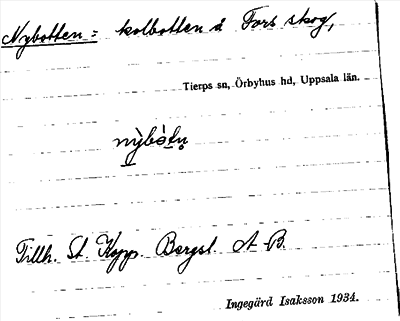 Nybotten = kolbotten å Fors skog,
Tierps sn, Örbyhus hd, Uppsala län.
nỳbòtn̥
Tillh. St. Kopp. Bergsl. A. B.
Ingegärd Isaksson 1934.